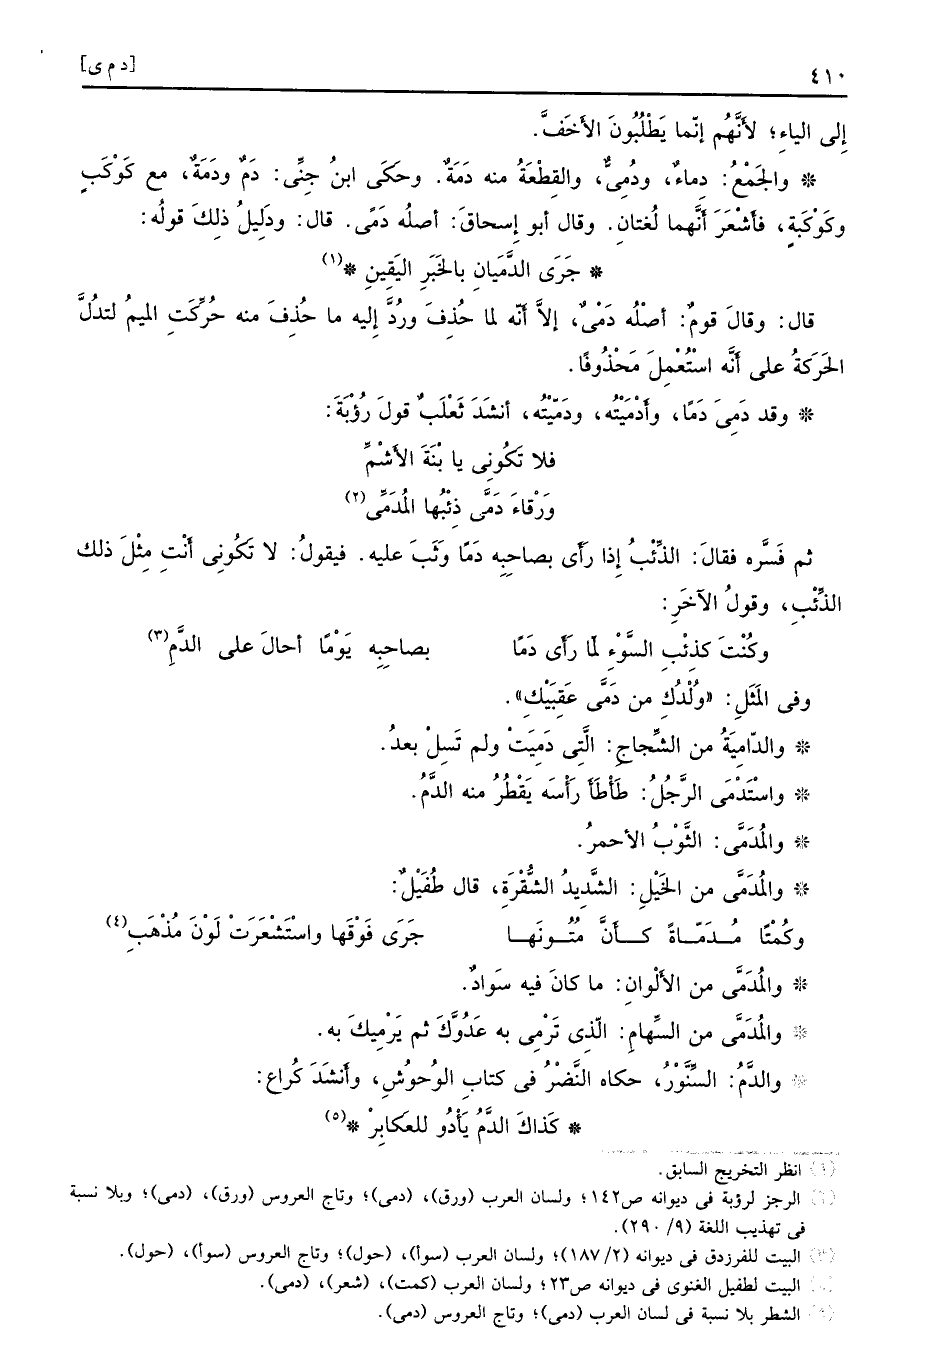 ٤١٠
[د م ى]
إلى الياءِ؛ لأَنَّهُم إنّما يَطْلُبُونَ الأخَفَّ.
* والجَمْعُ: دِماءٌ، ودُمِىٌّ، والقِطْعَةُ منه دَمَةٌ. وحَكَى ابنُ جِنِّى: دَمٌ ودَمَةٌ، مع كَوْكَبٍ
وكَوْكَبةٍ، فأشْعَرَ أنَّهما لُغتان. وقال أبو إسحاقَ: أصلُه دَمًى. قال: ودَلِيلُ ذلكَ قولُه:
* جَرَى الدَّمَيانِ بالخَبَرِ اليَقِينِ *(١)
قال: وقالَ قومٌ: أصلْهُ دَمْىٌ، إلاَّ أنّه لما حُذفَ ورُدَّ إليه ما حُذِفَ منه حُرِّكَتِ الميمُ لتدُلَّ
الحَركةُ على أنَّه اسْتُعْمِلَ مَحْذُوفًا.
* وقد دَمِىَ دَمًا، وأَدْمَيْتُه، ودَمَيّتُه، أنشَدَ ثَعْلَبٌ قولَ رُؤبَةَ:
فلا تَكُونِى يا بْنَةَ الأشْمِّ
وَرْقاءَ دَمَّى ذِئْبُها المُدَمِّى(٢)
ثم فَسَّره فقالَ: الذِّئْبُ إذا رأى بصاحِبِه دَمًا وثَبَ عليه. فيقولُ: لا تَكُونِى أنْتِ مِثْلَ ذلك
الذِّئْبِ، وقولُ الآخَرِ:
وكُنْتَ كذئْبِ السَّوْءِ لمّا رأى دَمًا بصاحِبِه يَوْمًا أحالَ على الدَّمِ(٣)
وفى المَثَلِ: «وُلْدُكِ من دَمَّى عَقِبَيْكِ».
* والدّامِيَةُ من الشِّجاجِ: الَّتِى دَمِيَتْ ولم تَسِلْ بعدُ.
* واسْتَدْمَى الرَّجُلُ: طَأْطَأَ رَأْسَه يَقْطُرُ منه الدَّمُ.
* والمُدَمَّى: الثَّوْبُ الأحمرُ.
* والمُدَمَّى من الخَيْلِ: الشَّدِيدُ الشُّقْرَةِ، قال طُفَيْلٌ:
وكُمْتًا مُـدَمّـاةً كــأنَّ مُتُـونَهـا جَرَى فَوْقَها واسْتَشْعَرَتْ لَوْنَ مُذْهَبِ(٤)
* والمُدَمَّى من الأَلْوانِ: ما كانَ فيه سَوادٌ.
* والمُدَمَّى من السِّهامِ: الّذِى تَرْمِى به عَدُوَّكَ ثم يَرْمِيكَ به.
* والدَّمُ: السِّنَّوْرُ، حكاه النَّضْرُ فى كتابِ الوُحوُشِ، وأنشَدَ كُراع:
* كَذاكَ الدَّمُ يَأْدُو للعَكابِرْ *(٥)
(١) انظر التخريج السابق.
(٢) الرجز لرؤبة فى ديوانه ص١٤٢؛ ولسان العرب (ورق)، (دمى)؛ وتاج العروس (ورق)، (دمى)؛ وبلا نسبة
فى تهذيب اللغة (٩/ ٢٩٠).
(٣) البيت للفرزدق فى ديوانه (٢/ ١٨٧)؛ ولسان العرب (سوأ)، (حول)؛ وتاج العروس (سوأ)، (حول).
(٤) البيت لطفيل الغنوى فى ديوانه ص٢٣؛ ولسان العرب (كمت)، (شعر)، (دمى).
(٥) الشطر بلا نسبة فى لسان العرب (دمى)؛ وتاج العروس (دمى).